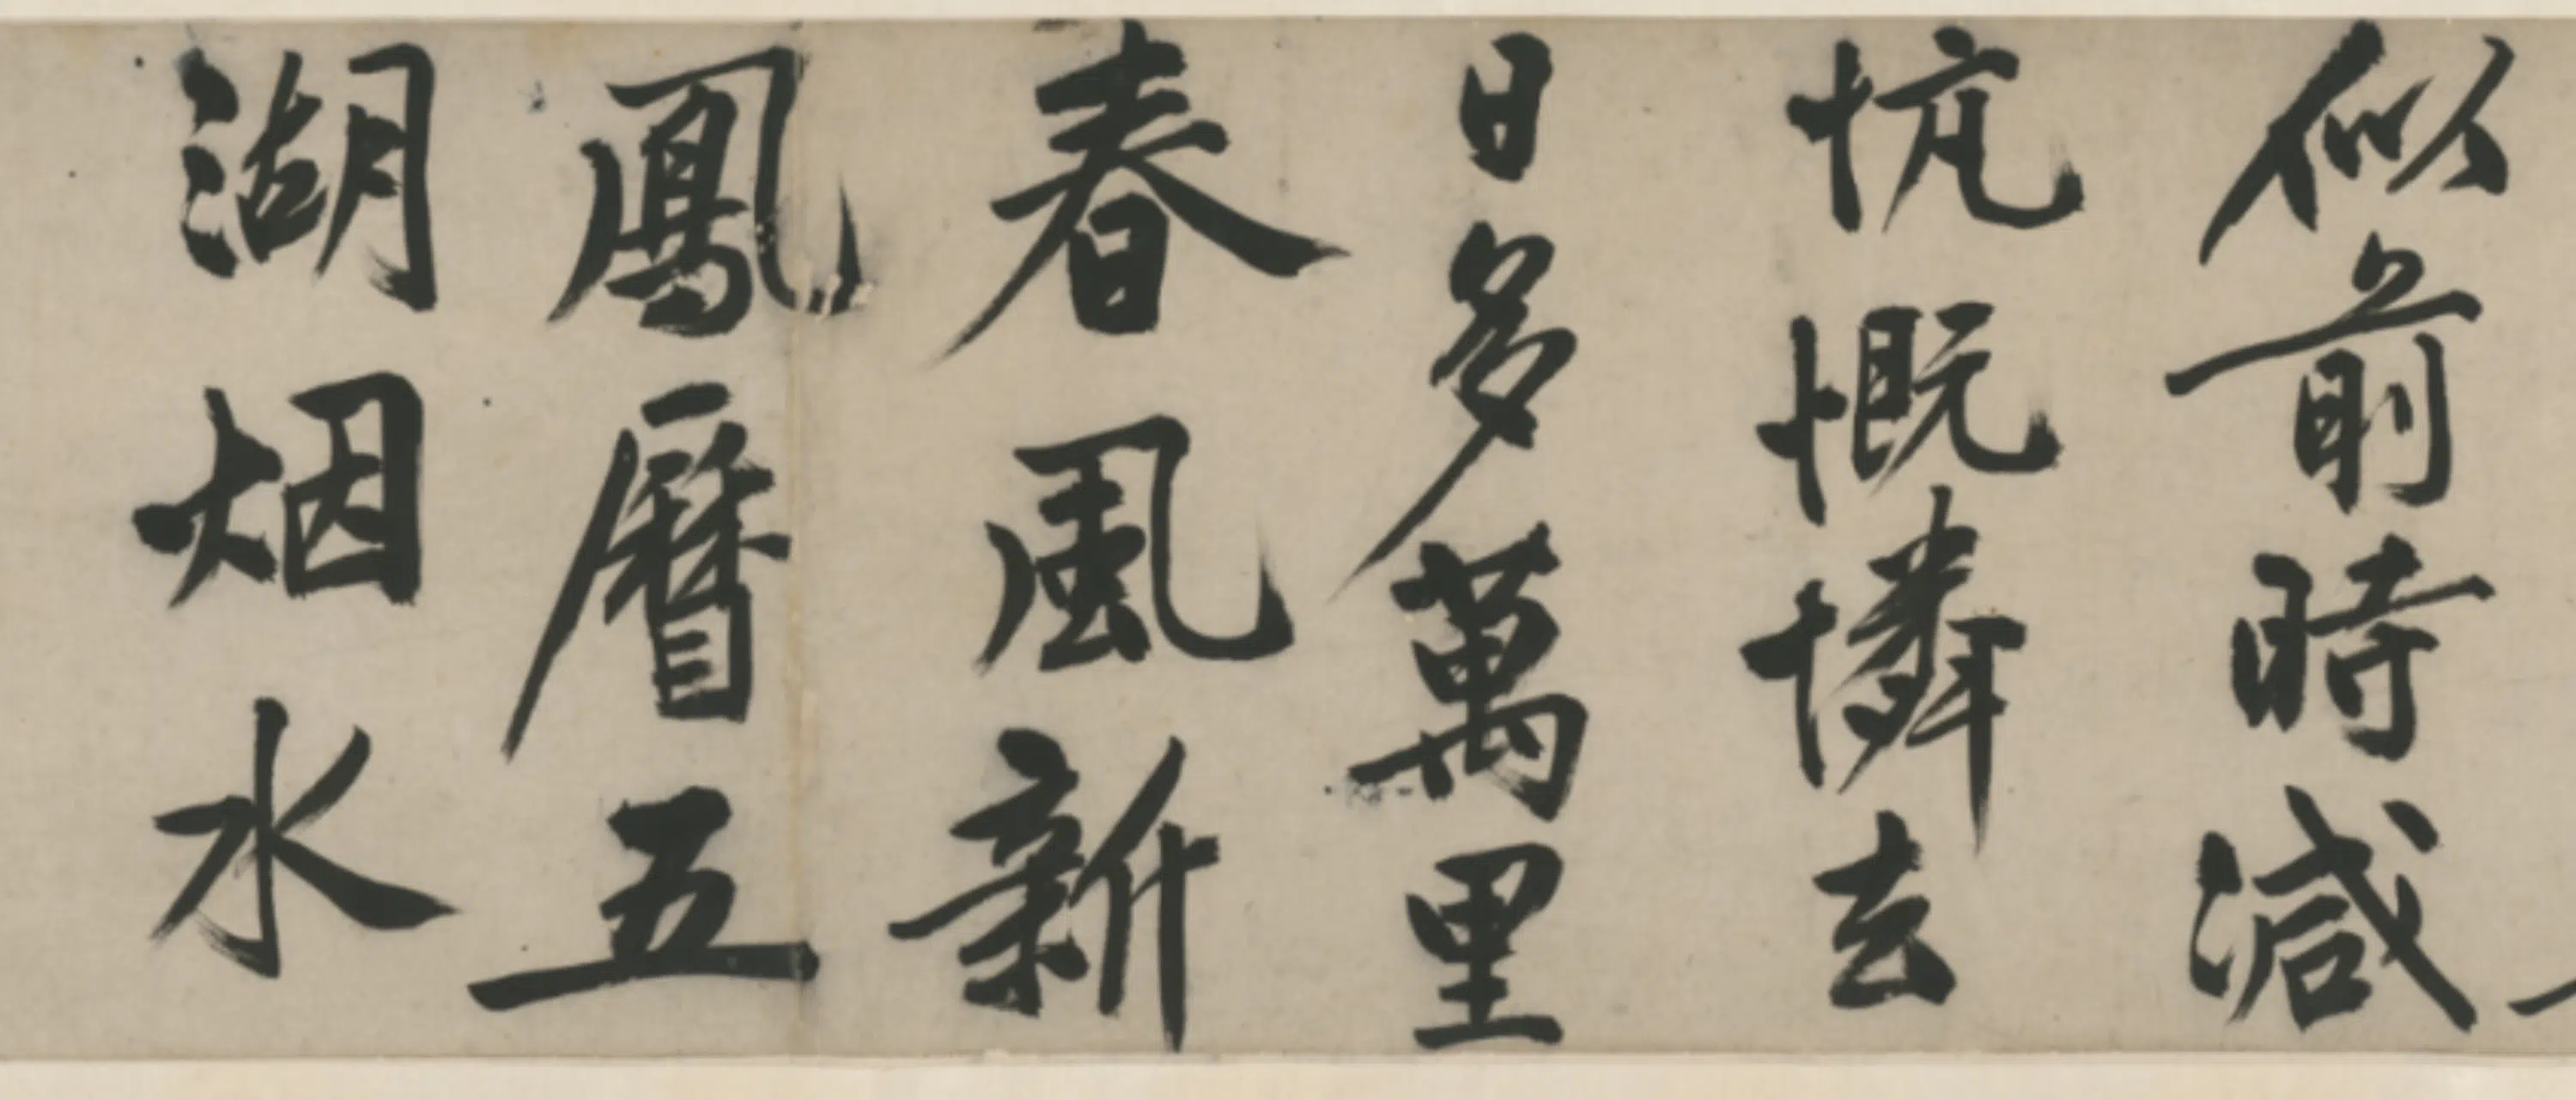 似前時減
忼慨憐去
日多萬里
春風新
鳳曆五
湖烟水